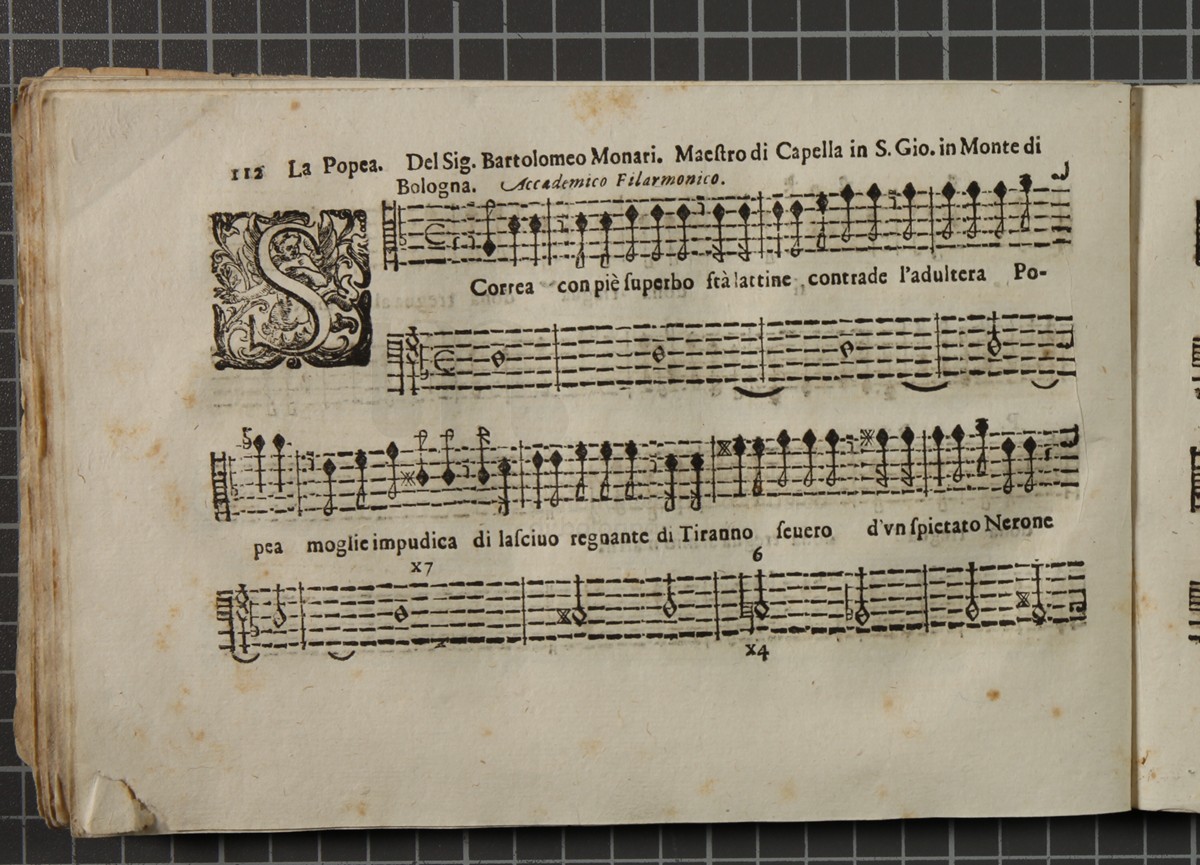 112 La Popea. Del Sig. Bartolomeo Monari. Maeſtro di Capella in S. Gio. in Monte di
Bologna. Accademico Filarmonico.
S
Correa con piè ſuperbo ſtà lattine contrade l'adultera Po-
pea moglie impudica di laſciuo regnante di Tiranno ſeuero d'vn ſpietato Nerone
x7 6
x4